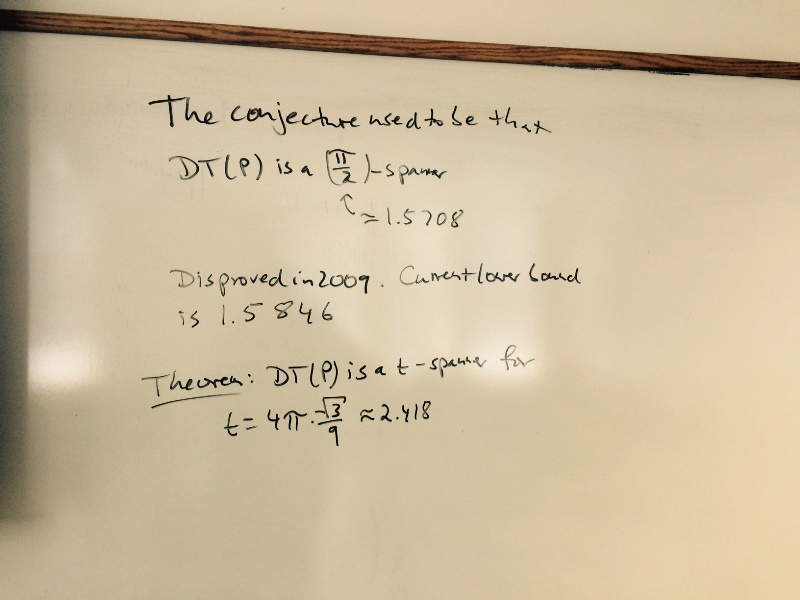 The conjecture used to be that
DT(P) is a (π/2)-spanner
↑ ≈ 1.5708
Disproved in 2009. Current lower bound
is 1.5846
Theorem: DT(P) is a t-spanner for
t = 4π·√3/9 ≈ 2.418